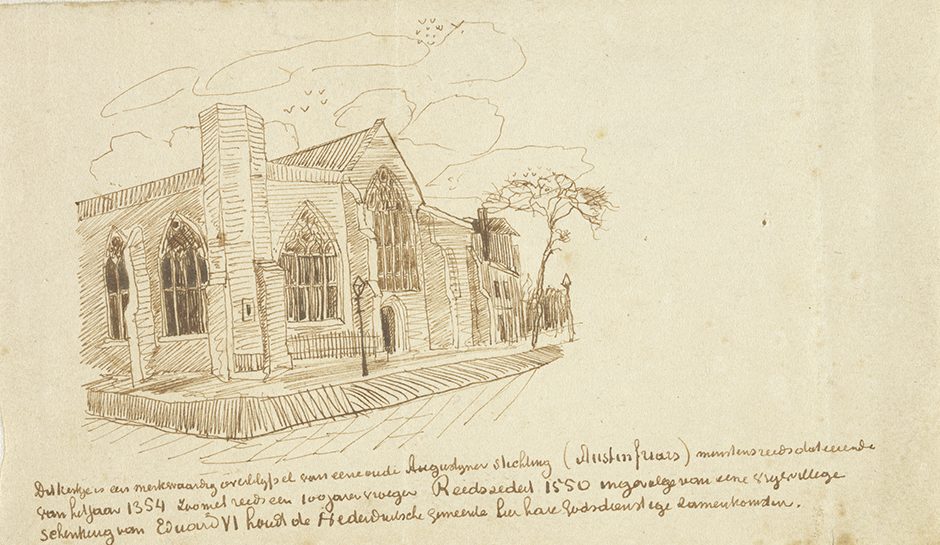 Dit kerkje is een merkwaardig overblijfsel van eene oude Augustijner stichting (Austin friars) minstens reeds dateerende
van het jaar 1354 zoo niet reeds een 100 jaar vroeger Reeds sedert 1550 ingevolge van eene vrijwillige
schenking van Eduard VI houdt de Nederduitsche gemeente hier hare Godsdienstige zamenkomsten.